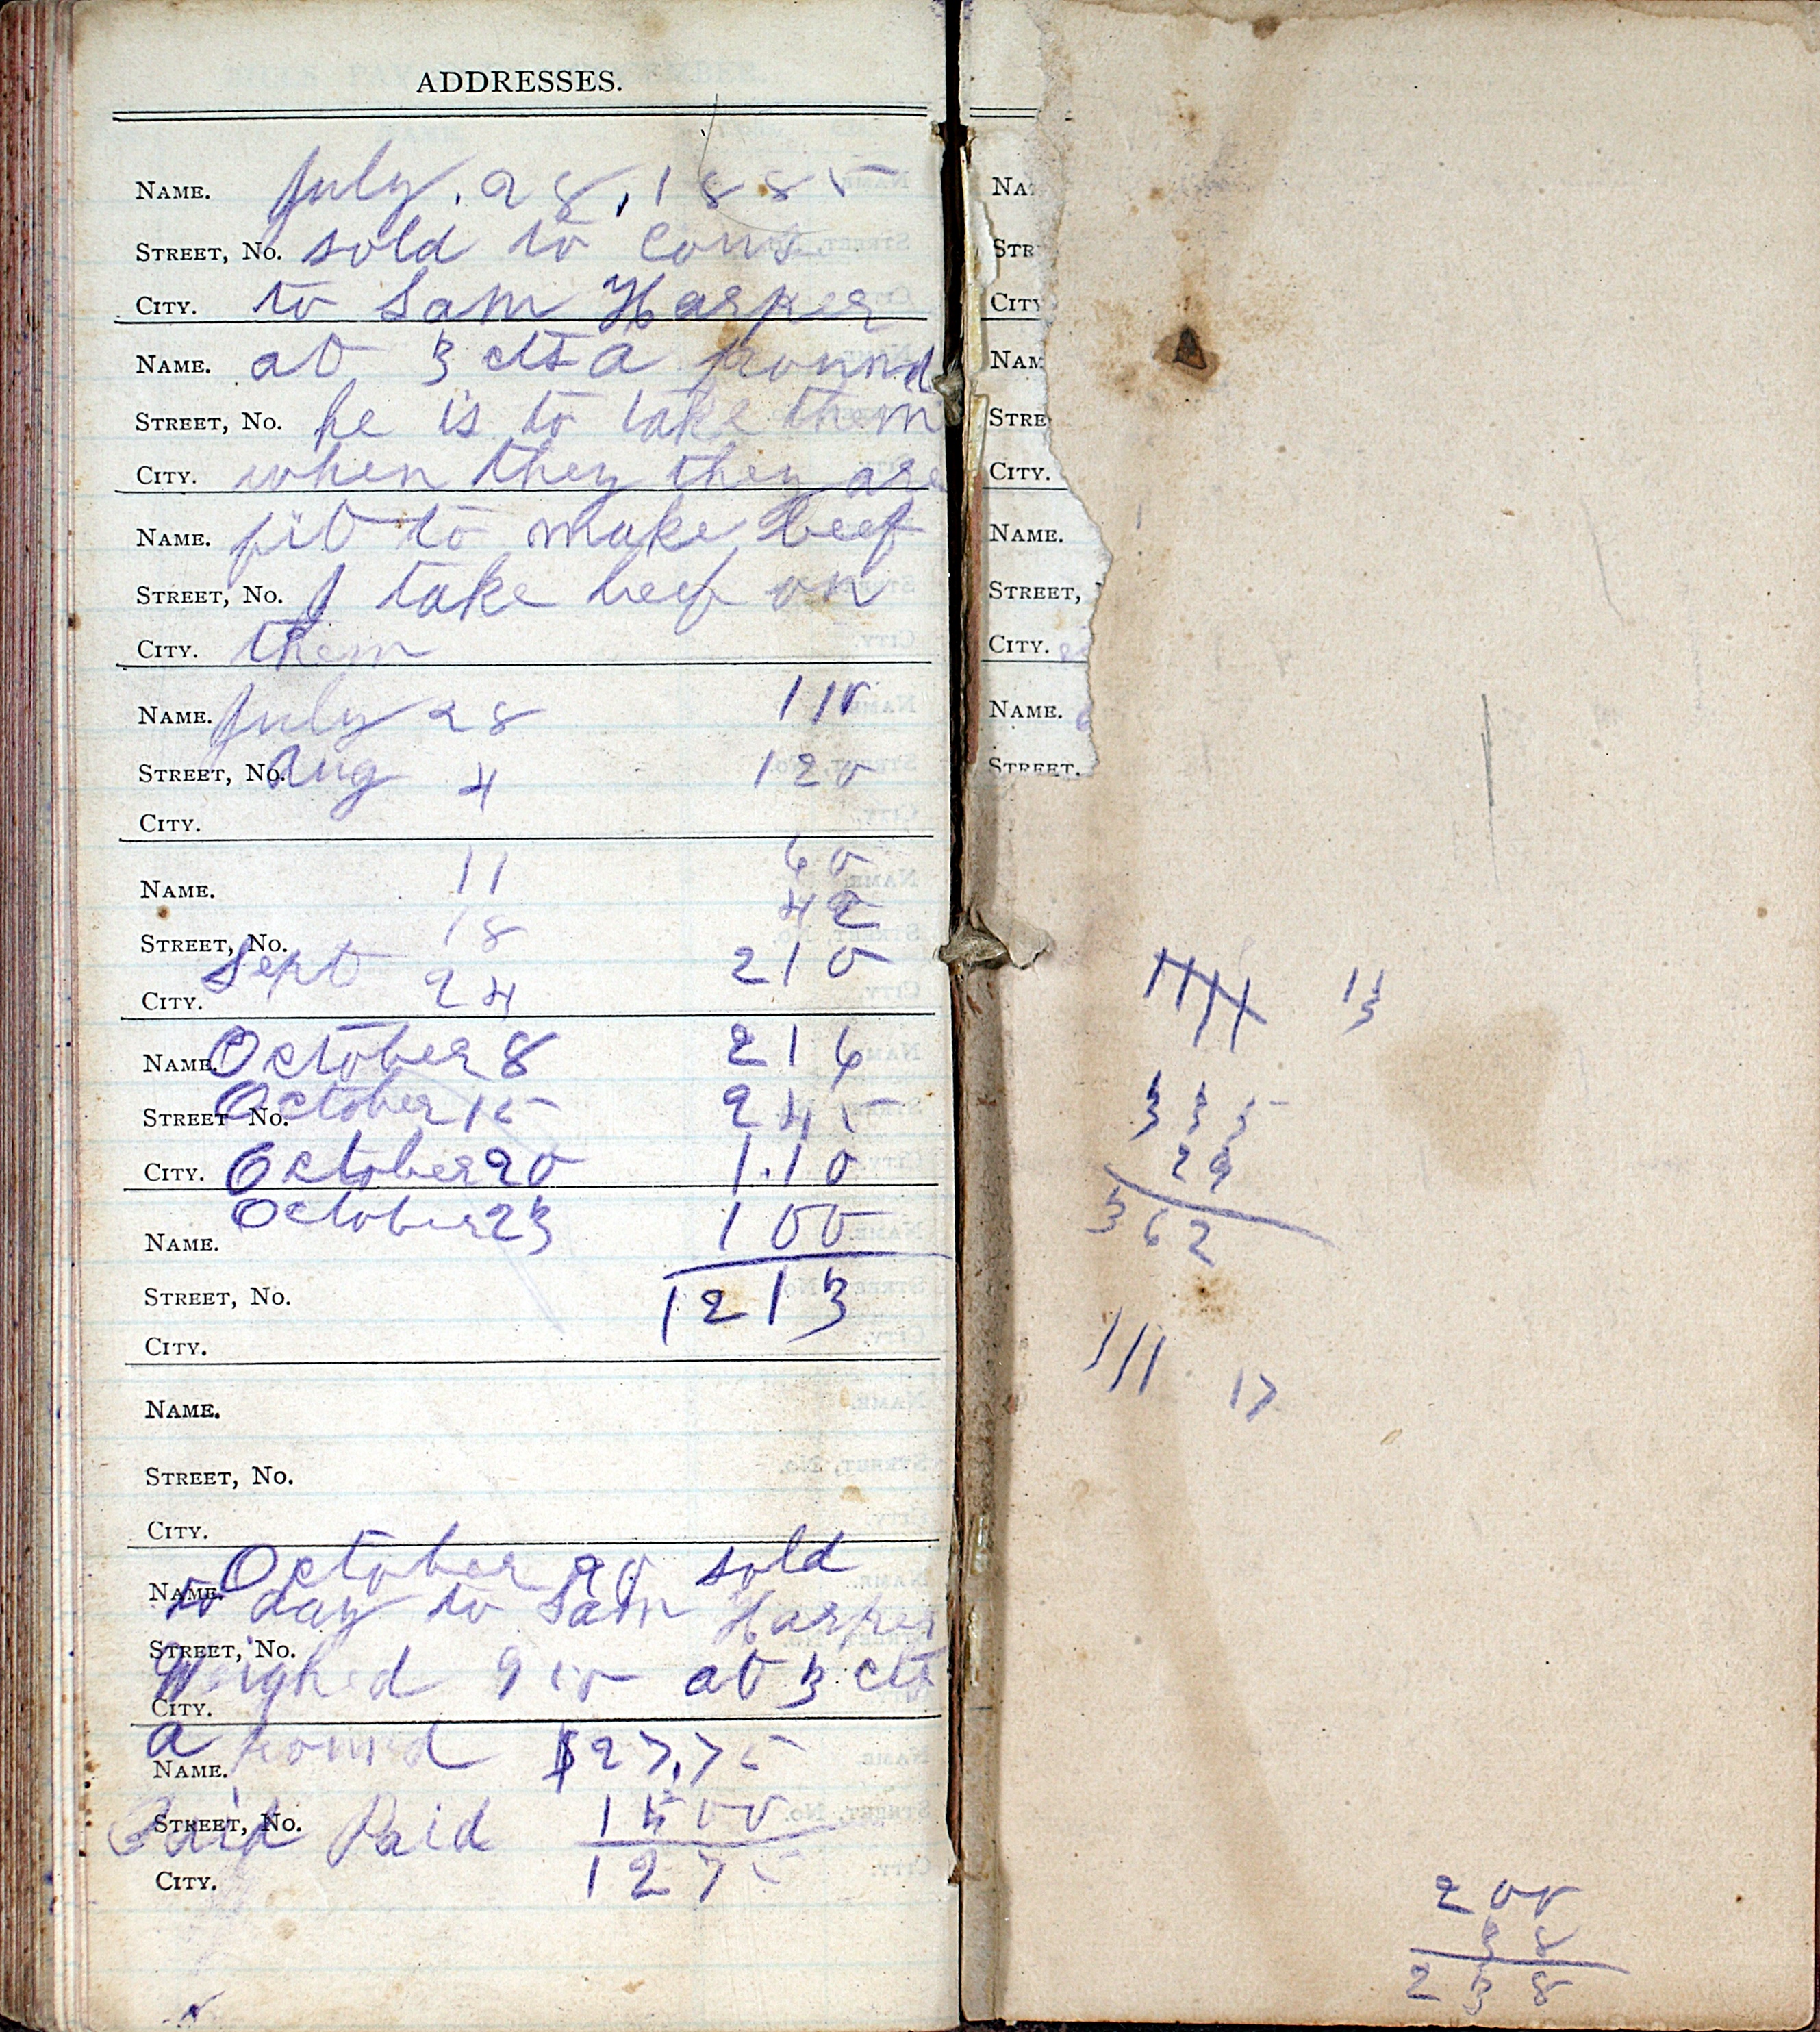 ADDRESSES.
NAME. July. 28, 1885
STREET, NO. sold to Cows
CITY. to Sam Harper
NAME. at 3 cts a pound
STREET, NO. he is to take them
CITY. when they they are
NAME. fit to make beef
STREET, NO. I take beef on
CITY. them
NAME. July 28 110
STREET, NO. Aug 4 120
CITY.
NAME. 11 60
STREET, NO. 18 42
CITY. Sept 24 210
NAME. October 8 216
STREET NO. October 15 245
CITY. October 20 1.10
October 23 100
NAME.
STREET, NO. 1213
CITY.
NAME.
STREET, NO.
CITY.
October 20 sold
NAME. to day to Sam Harper
STREET, NO.
Weighed 925 at 3 cts
CITY.
a pound $27,75
NAME.
1500
STREET, NO. Paid Paid
CITY. 1275
NA
STR
CITY
NAM
STRE
CITY.
NAME.
STREET,
CITY.
NAME.
STREET.
13
333
29
362
111 17
200
38
238